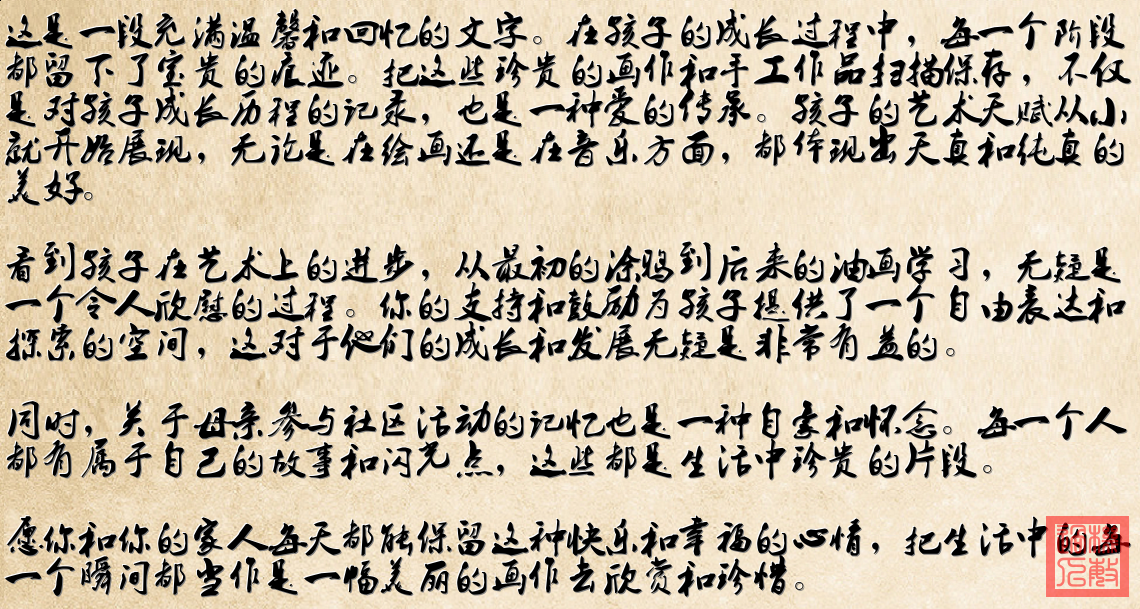 这是一段充满温馨和回忆的文字。在孩子的成长过程中，每一个阶段
都留下了宝贵的痕迹。把这些珍贵的画作和手工作品扫描保存，不仅
是对孩子成长历程的记录，也是一种爱的传承。孩子的艺术天赋从小
就开始展现，无论是在绘画还是在音乐方面，都体现出天真和纯真的
美好。
看到孩子在艺术上的进步，从最初的涂鸦到后来的油画学习，无疑是
一个令人欣慰的过程。你的支持和鼓励为孩子提供了一个自由表达和
探索的空间，这对于他们的成长和发展无疑是非常有益的。
同时，关于母亲参与社区活动的记忆也是一种自豪和怀念。每一个人
都有属于自己的故事和闪光点，这些都是生活中珍贵的片段。
愿你和你的家人每天都能保留这种快乐和幸福的心情，把生活中的每
一个瞬间都当作是一幅美丽的画作去欣赏和珍惜。